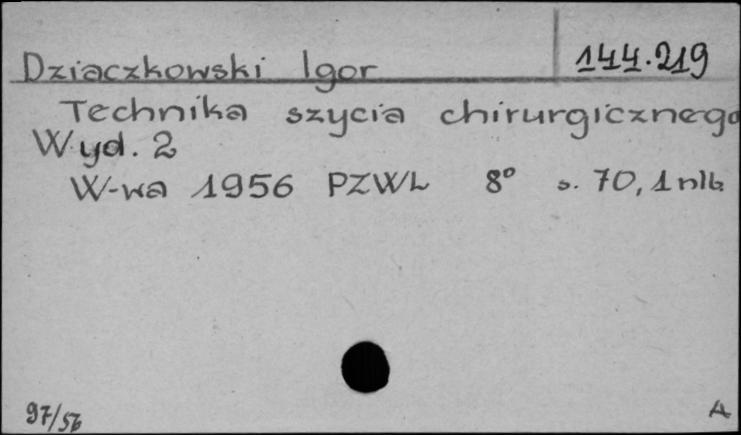 Dziaczkowski Igor 144.219
Technika szycia chirurgicznego
Wyd. 2
W-wa 1956 PZWL 8° s. 70, 1 nlb
97/56 A